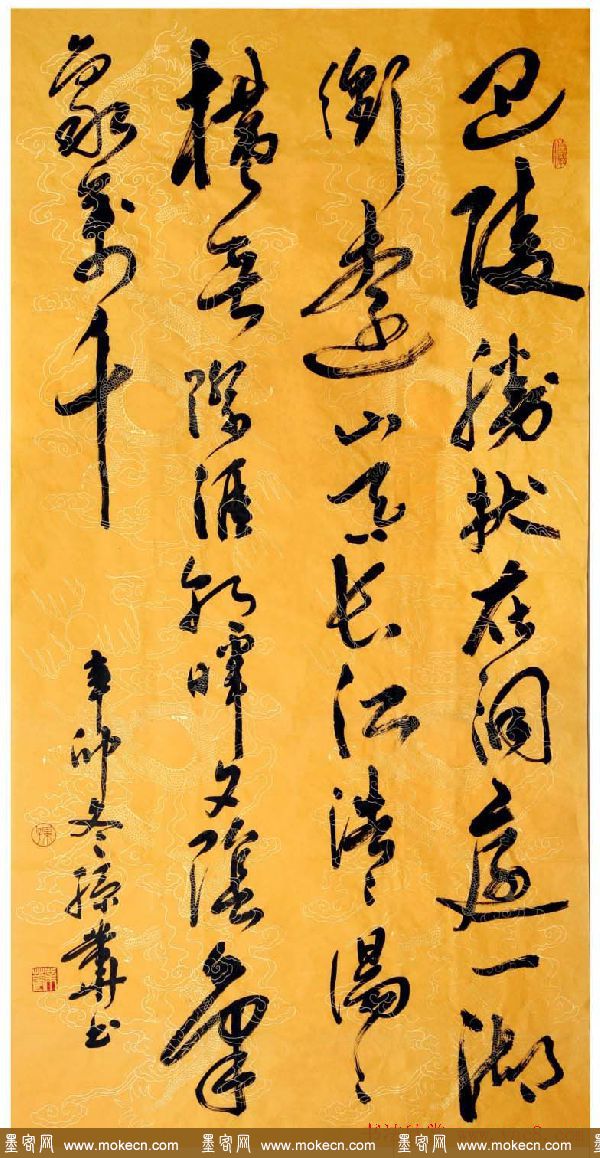 巴陵勝狀在洞庭一湖
銜遠山吞长江浩〻湯〻
橫無際涯朝暉夕陰氣
象萬千
辛卯冬孫書
墨客网 www.mokecn.com 墨客网 www.mokecn.com 墨客网 www.mokecn.com 墨客网